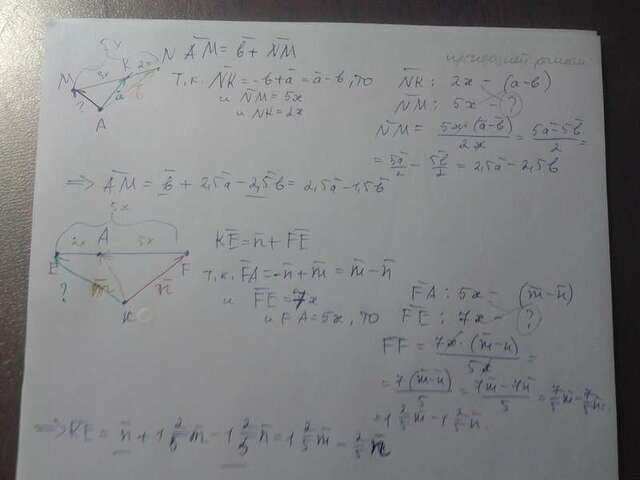 5x
3x
2x
M
K
N
a
b
?
A
AM̄ = b̄ + NM̄
Т.к. NK̄ = -b+ā = ā-b, то
и NM̄ = 5x
и NK = 2x
NK̄ : 2x – (a-b)
NM̄ : 5x – ?
NM̄ = 5x·(ā-b̄)/2x = 5ā-5b̄/2 =
= 5ā/2 - 5b̄/2 = 2,5ā - 2,5b̄
=> AM̄ = b̄ + 2,5ā - 2,5b̄ = 2,5ā - 1,5b̄
5x
2x
A
5x
E
F
?
m̄
n̄
K
KĒ = n̄ + FĒ
Т.к. FĀ = -n̄ + m̄ = m̄ - n̄
и FĒ = 7x
и FA = 5x, то
FĀ : 5x – (m̄-n̄)
FĒ : 7x – ?
FF = 7x·(m̄-n)/5x =
= 7(m̄-n)/5 = 7m̄-7n̄/5 = 7/5 m̄ - 7/5 n̄ =
= 1 2/5 m̄ - 1 2/5 n̄
=> KE = n̄ + 1 2/5 m̄ - 1 2/5 n̄ = 1 2/5 m̄ - 2/5 n̄